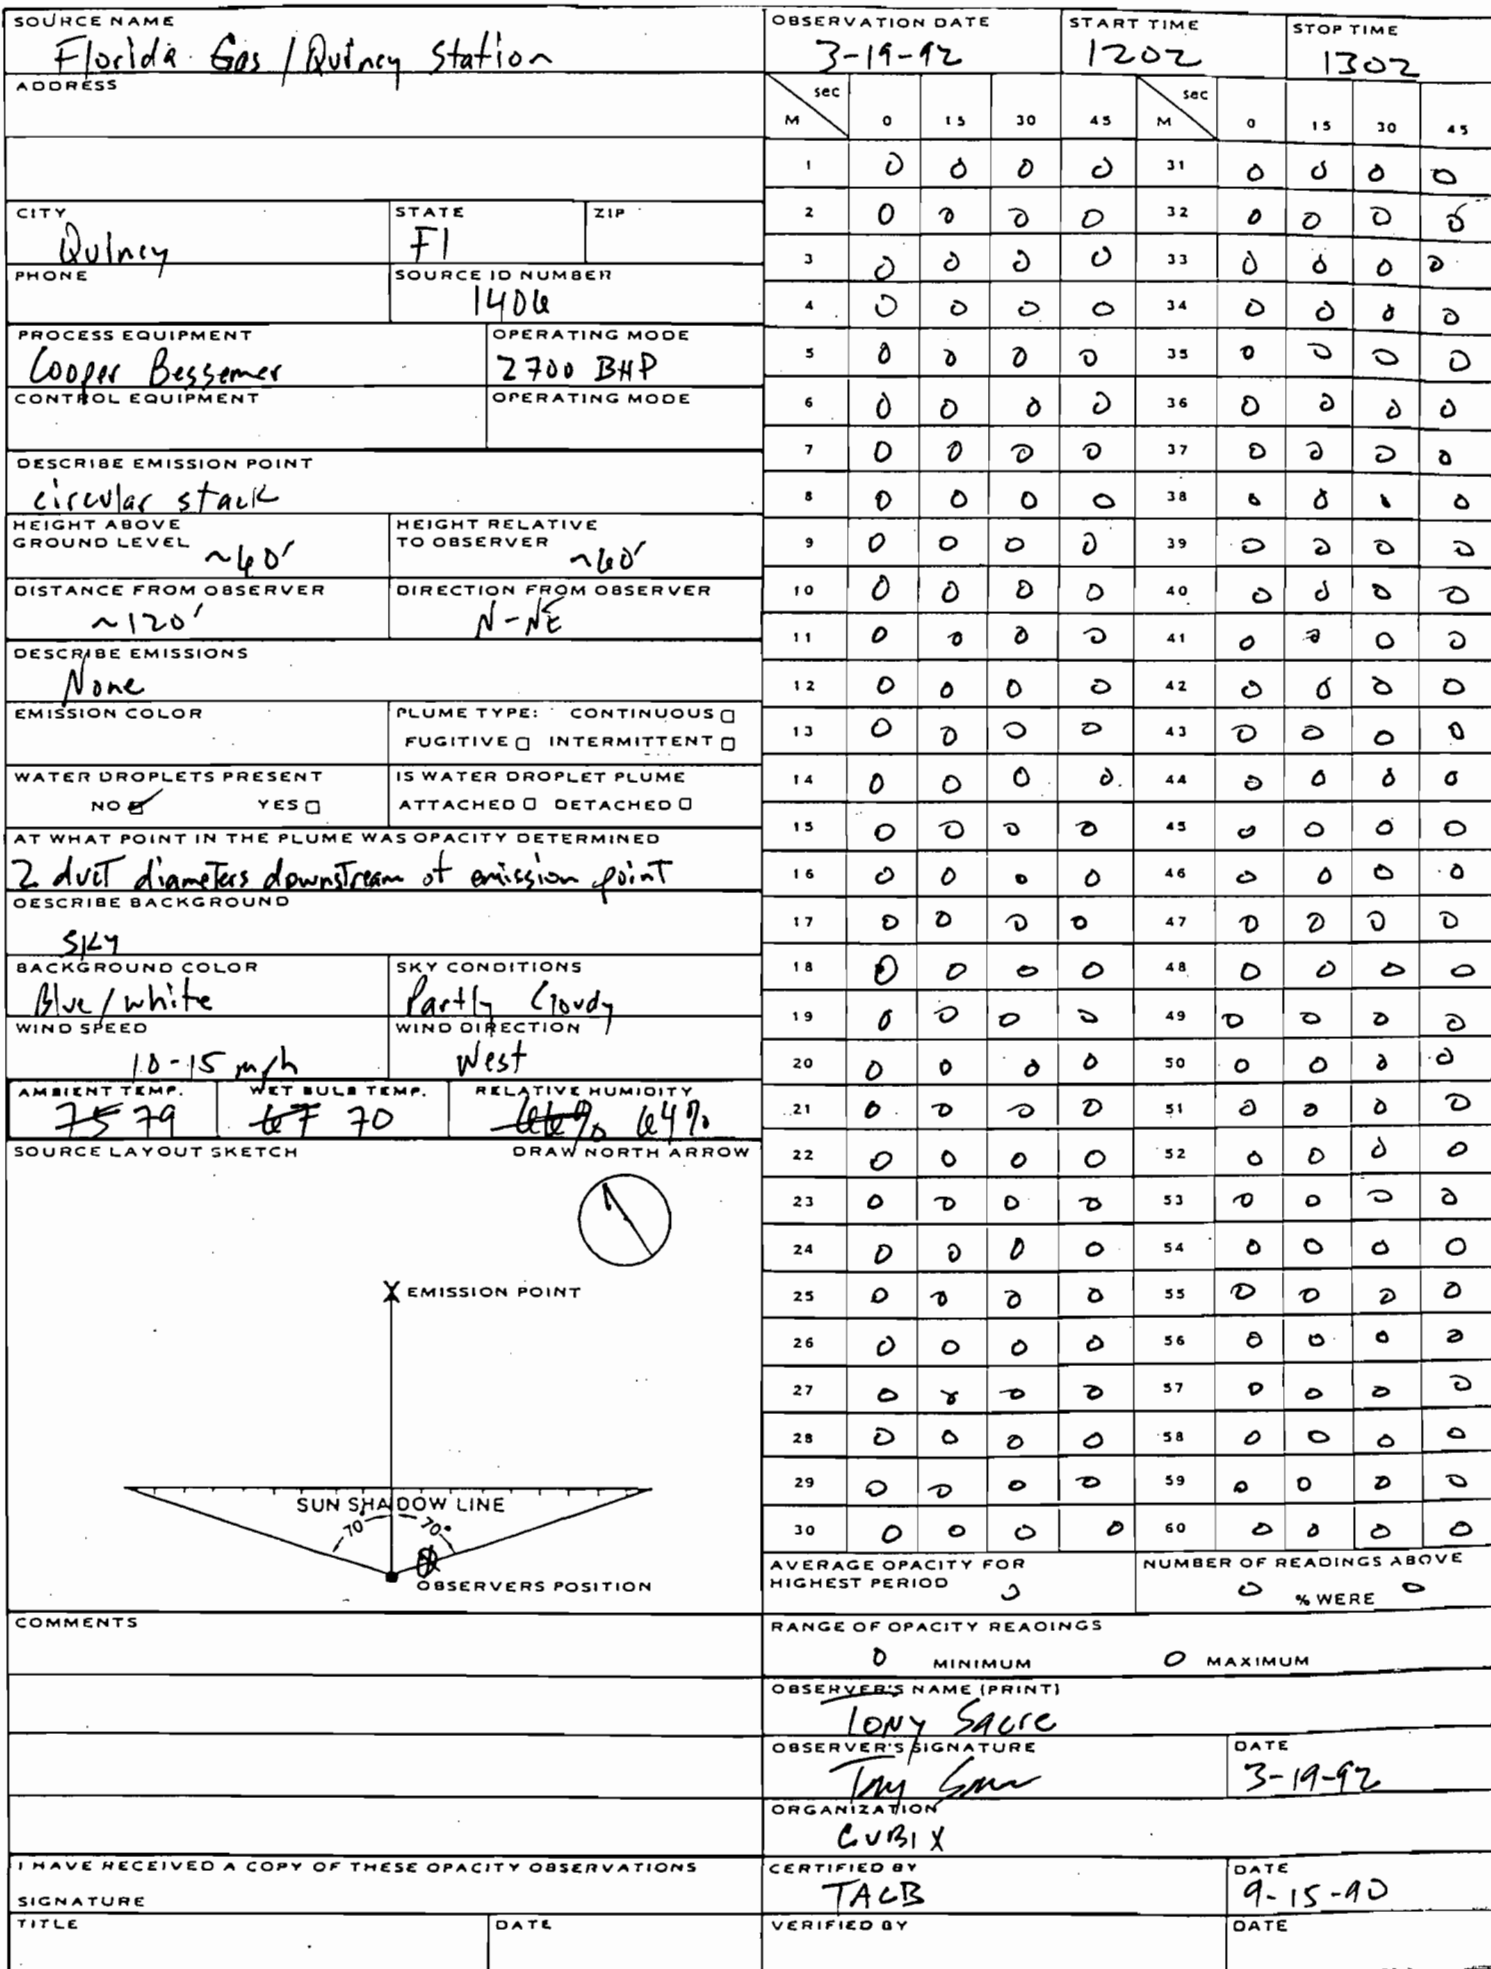 SOURCE NAME
Florida Gas / Quincy Station
ADDRESS
CITY STATE ZIP
Quincy Fl
PHONE SOURCE ID NUMBER
1406
PROCESS EQUIPMENT OPERATING MODE
Cooper Bessemer 2700 BHP
CONTROL EQUIPMENT OPERATING MODE
DESCRIBE EMISSION POINT
circular stack
HEIGHT ABOVE GROUND LEVEL HEIGHT RELATIVE TO OBSERVER
~60' ~60'
DISTANCE FROM OBSERVER DIRECTION FROM OBSERVER
~120' N-NE
DESCRIBE EMISSIONS
None
EMISSION COLOR PLUME TYPE: CONTINUOUS □
FUGITIVE □ INTERMITTENT □
WATER DROPLETS PRESENT IS WATER DROPLET PLUME
NO ☑ YES □ ATTACHED □ DETACHED □
AT WHAT POINT IN THE PLUME WAS OPACITY DETERMINED
2 duct diameters downstream of emission point
DESCRIBE BACKGROUND
sky
BACKGROUND COLOR SKY CONDITIONS
Blue/white Partly Cloudy
WIND SPEED WIND DIRECTION
10-15 mph West
AMBIENT TEMP. WET BULB TEMP. RELATIVE HUMIDITY
75 79 67 70 66% 64%
SOURCE LAYOUT SKETCH DRAW NORTH ARROW
X EMISSION POINT
SUN SHADOW LINE
70° 70°
OBSERVERS POSITION
COMMENTS
I HAVE RECEIVED A COPY OF THESE OPACITY OBSERVATIONS
SIGNATURE
TITLE DATE
OBSERVATION DATE START TIME STOP TIME
3-19-92 1202 1302
sec sec
M 0 15 30 45 M 0 15 30 45
1 0 0 0 0 31 0 0 0 0
2 0 0 0 0 32 0 0 0 0
3 0 0 0 0 33 0 0 0 0
4 0 0 0 0 34 0 0 0 0
5 0 0 0 0 35 0 0 0 0
6 0 0 0 0 36 0 0 0 0
7 0 0 0 0 37 0 0 0 0
8 0 0 0 0 38 0 0 0 0
9 0 0 0 0 39 0 0 0 0
10 0 0 0 0 40 0 0 0 0
11 0 0 0 0 41 0 0 0 0
12 0 0 0 0 42 0 0 0 0
13 0 0 0 0 43 0 0 0 0
14 0 0 0 0 44 0 0 0 0
15 0 0 0 0 45 0 0 0 0
16 0 0 0 0 46 0 0 0 0
17 0 0 0 0 47 0 0 0 0
18 0 0 0 0 48 0 0 0 0
19 0 0 0 0 49 0 0 0 0
20 0 0 0 0 50 0 0 0 0
21 0 0 0 0 51 0 0 0 0
22 0 0 0 0 52 0 0 0 0
23 0 0 0 0 53 0 0 0 0
24 0 0 0 0 54 0 0 0 0
25 0 0 0 0 55 0 0 0 0
26 0 0 0 0 56 0 0 0 0
27 0 0 0 0 57 0 0 0 0
28 0 0 0 0 58 0 0 0 0
29 0 0 0 0 59 0 0 0 0
30 0 0 0 0 60 0 0 0 0
AVERAGE OPACITY FOR HIGHEST PERIOD 0
NUMBER OF READINGS ABOVE
0 % WERE 0
RANGE OF OPACITY READINGS
0 MINIMUM 0 MAXIMUM
OBSERVER'S NAME (PRINT)
Tony Sacre
OBSERVER'S SIGNATURE DATE
3-19-92
ORGANIZATION
CUBIX
CERTIFIED BY DATE
TACB 9-15-90
VERIFIED BY DATE